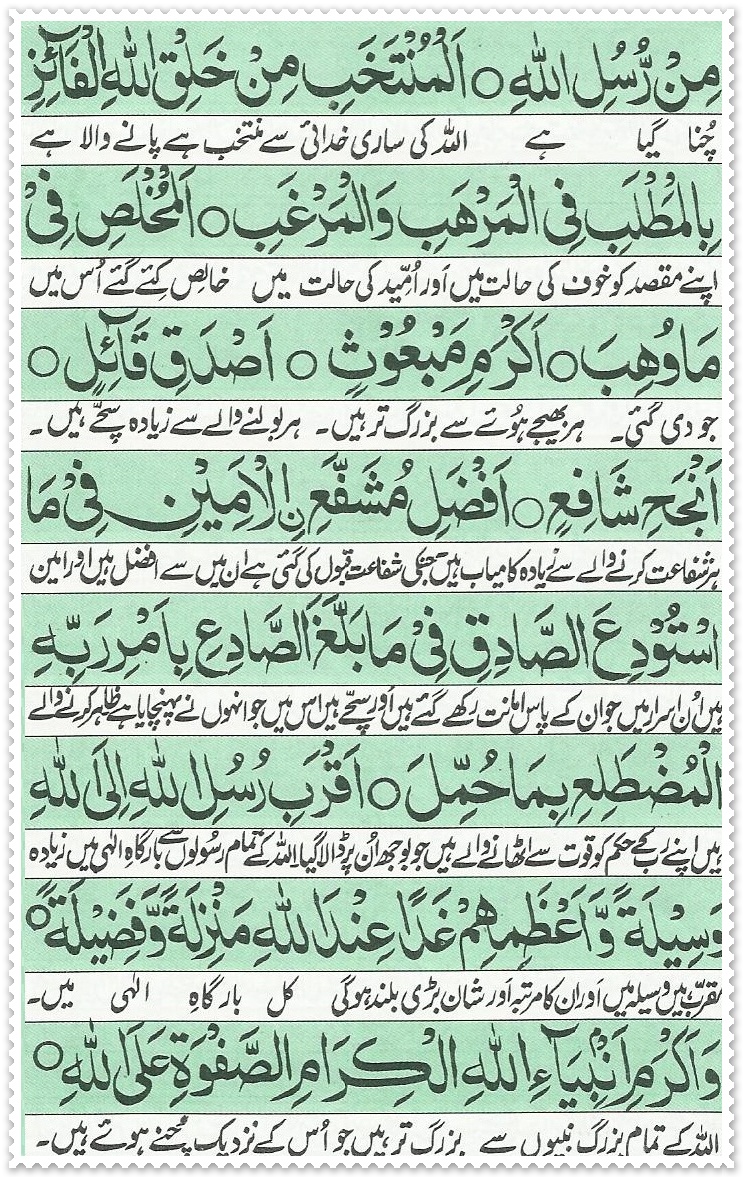 مِنْ رُّسُلِ اللّٰهِ ○ اَلْمُنْتَخَبِ مِنْ خَلْقِ اللّٰهِ الْفَآئِزِ
چُنا گیا ہے اللہ کی ساری خدائی سے منتخب ہے پانے والا ہے
بِالْمَطْلَبِ فِی الْمَرْهَبِ وَالْمَرْغَبِ ○ اَلْمُخْلَصِ فِیْ
اپنے مقصد کو خوف کی حالت میں اَور اُمّید کی حالت میں خالِص کِئے گئے اُس میں
مَا وُهِبَ ○ اَكْرَمِ مَبْعُوْثٍ ○ اَصْدَقِ قَآئِلٍ ○
جو دی گئی۔ ہر بھیجے ہُوئے سے بزرگ تر ہیں۔ ہر بولنے والے سے زیادہ سچّے ہیں۔
اَنْجَحِ شَافِعٍ ○ اَفْضَلِ مُشَفَّعِ نِ الْاَمِيْنِ فِیْ مَا
ہر شفاعت کرنے والے سے زیادہ کامیاب ہیں جنکی شفاعت قبول کی گئی ہے ان میں سے افضل ہیں اور امین
اسْتُوْدِعَ الصَّادِقِ فِیْ مَا بَلَّغَ الصَّادِعِ بِاَمْرِ رَبِّهٖ
ہیں اُن اسرار میں جو ان کے پاس امانت رکھے گئے ہیں اَور سچّے ہیں اس میں جو انہوں نے پہنچایا ہے ظاہر کرنے والے
الْمُضْطَلِعِ بِمَا حُمِّلَ ○ اَقْرَبِ رُسُلِ اللّٰهِ اِلَی اللّٰهِ
ہیں اپنے رب کے حکم کو قوت سے اٹھانے والے ہیں جو بوجھ اُن پر ڈالا گیا اللہ کے تمام رسولوں سے بارگاہِ الٰہی میں زیادہ
وَسِيْلَةً وَّاَعْظَمِهِمْ غَدًا عِنْدَ اللّٰهِ مَنْزِلَةً وَّفَضِيْلَةً ○
مقرّب ہیں وسیلہ میں اَور ان کا مرتبہ اَور شان بڑی بلند ہوگی کل بارگاہِ الٰہی میں۔
وَاَكْرَمِ اَنْۢبِيَآءِ اللّٰهِ الْكِرَامِ الصَّفْوَةِ عَلَی اللّٰهِ ○
اللہ کے تمام بزرگ نبیوں سے بزرگ تر ہیں جو اُس کے نزدیک چُنے ہوئے ہیں۔